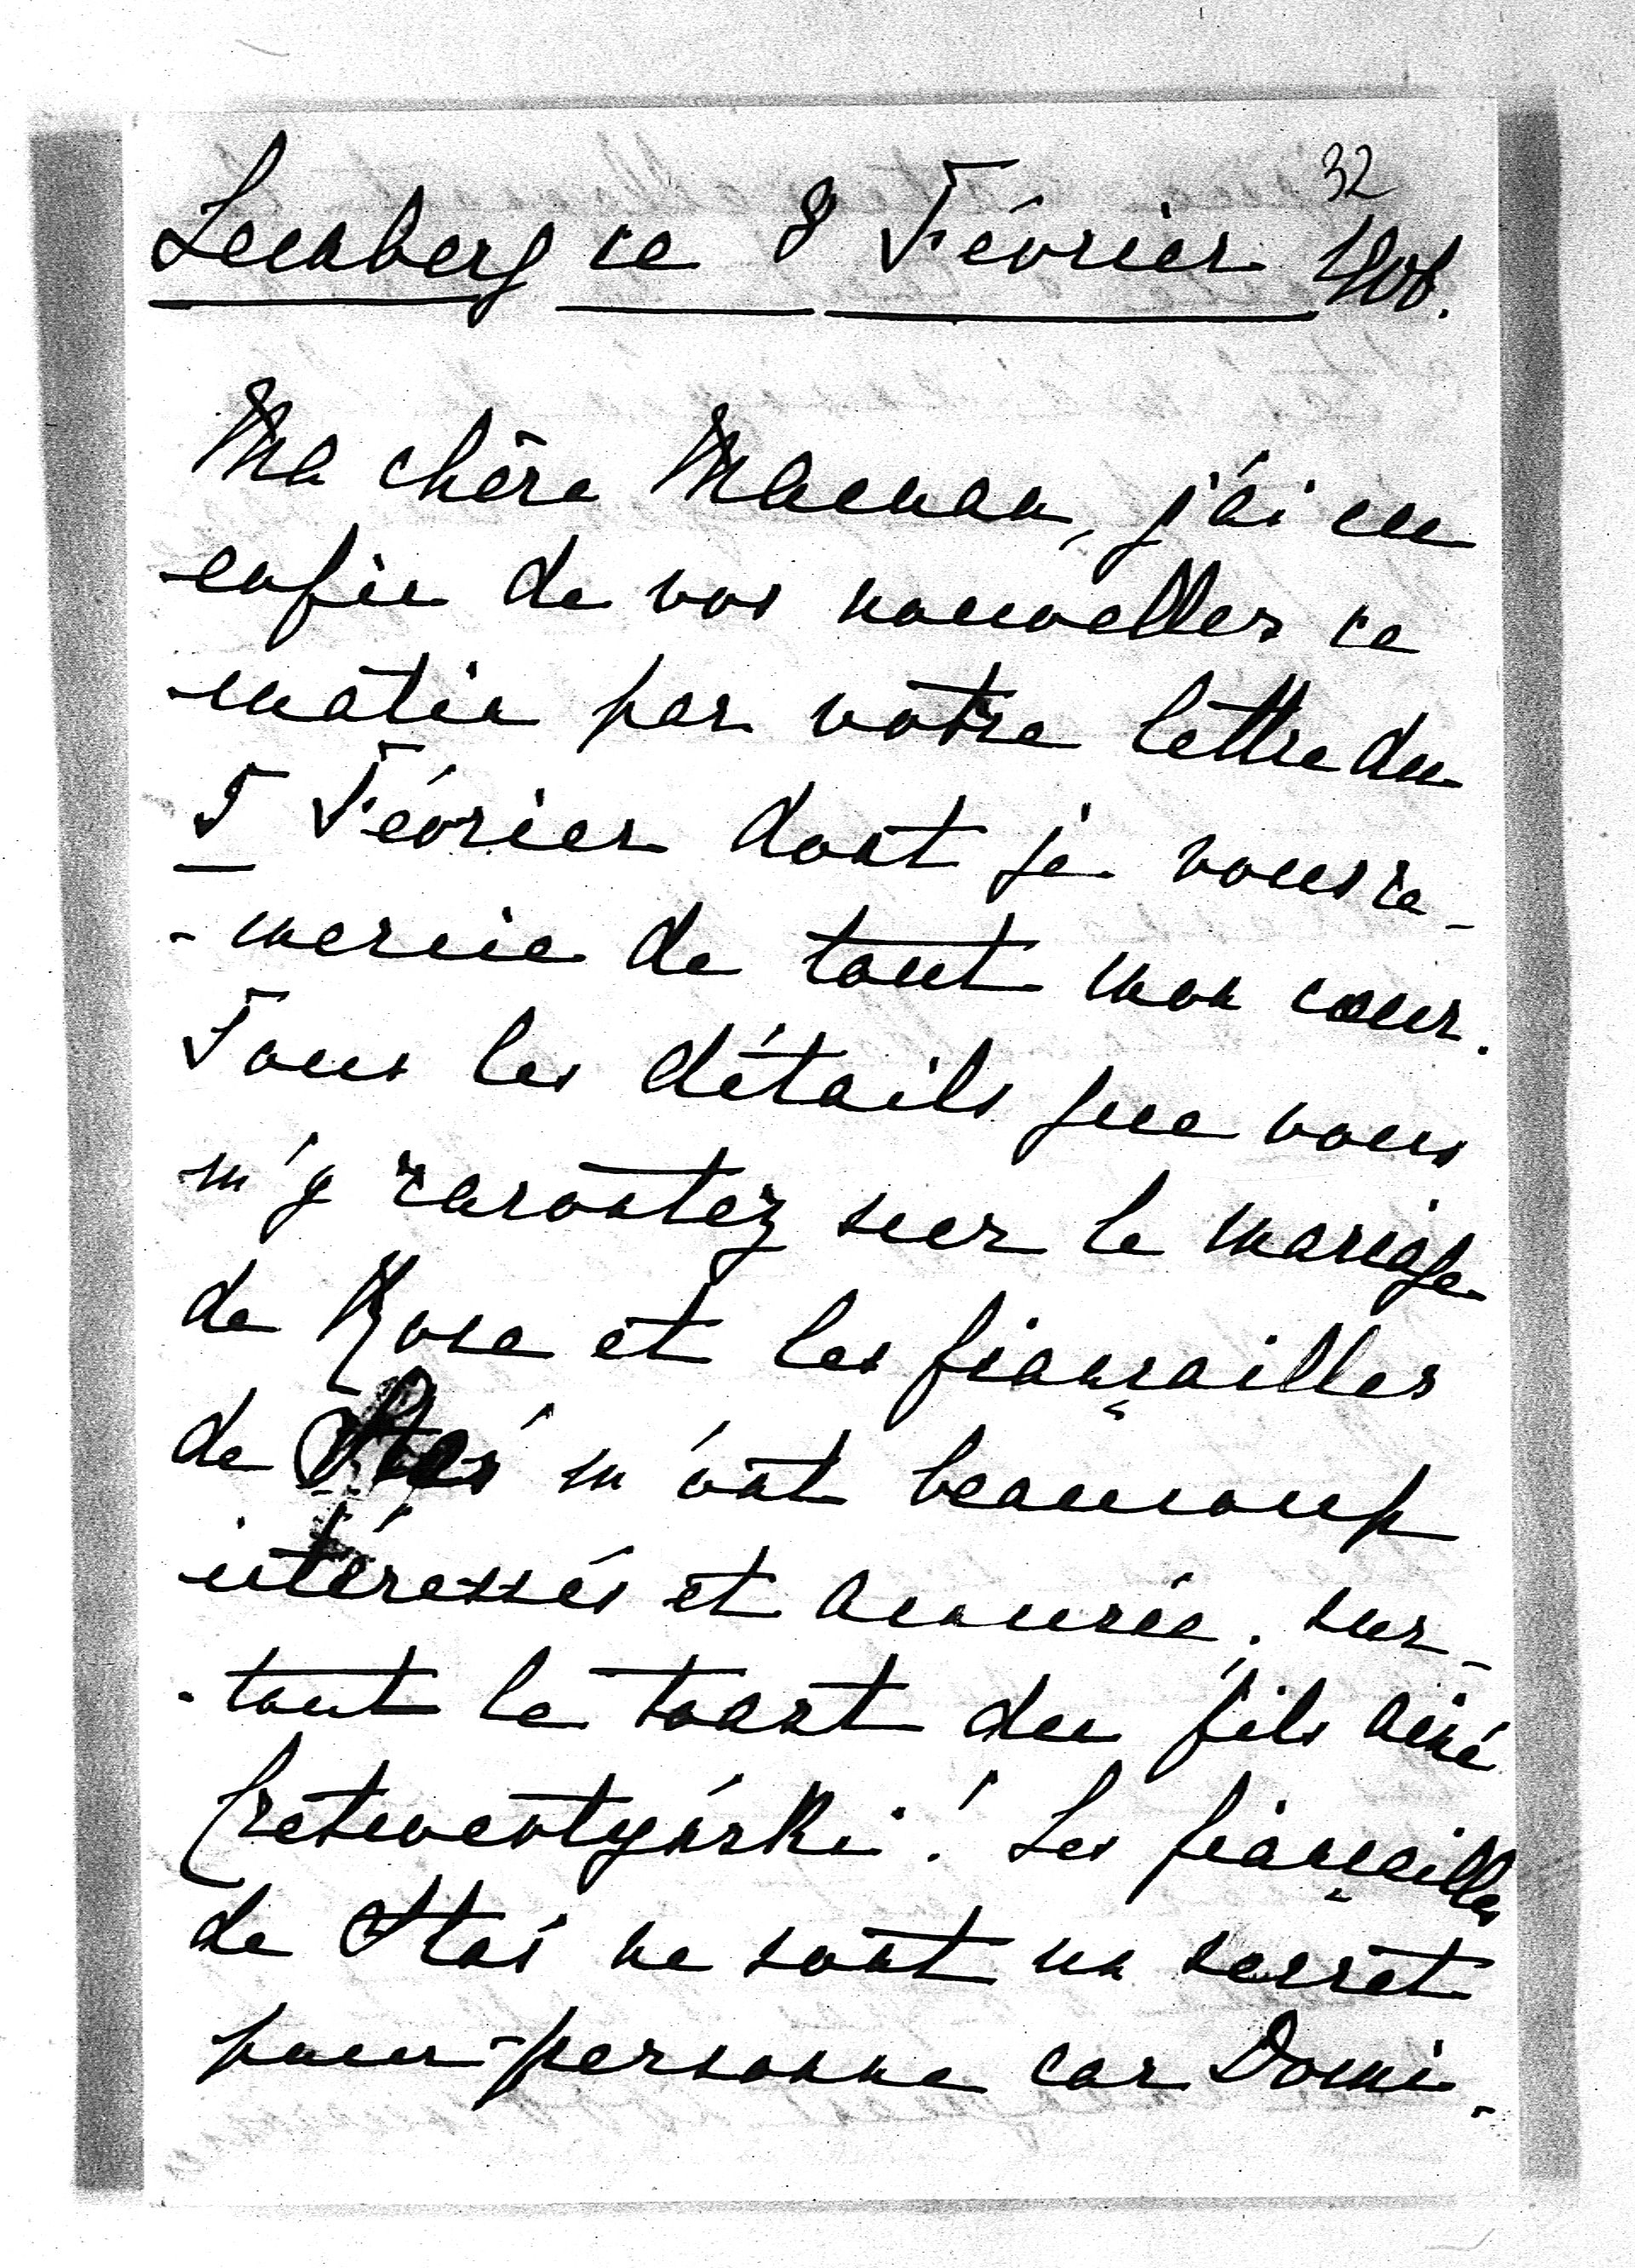 32
Lemberg ce 8 Février 1908.
Ma chère Maman, j'ai eu
enfin de vos nouvelles ce
matin par votre lettre du
5 Février dont je vous re-
-mercie de tout mon cœur.
Tous les détails que vous
m'y racontez sur le mariage
de Rose et les fiançailles
de Staś m'ont beaucoup
intéressés et amusée, sur-
-tout le toast du fils ainé
! Les fiançailles
de Staś ne sont un secret
pour personne car Domi-